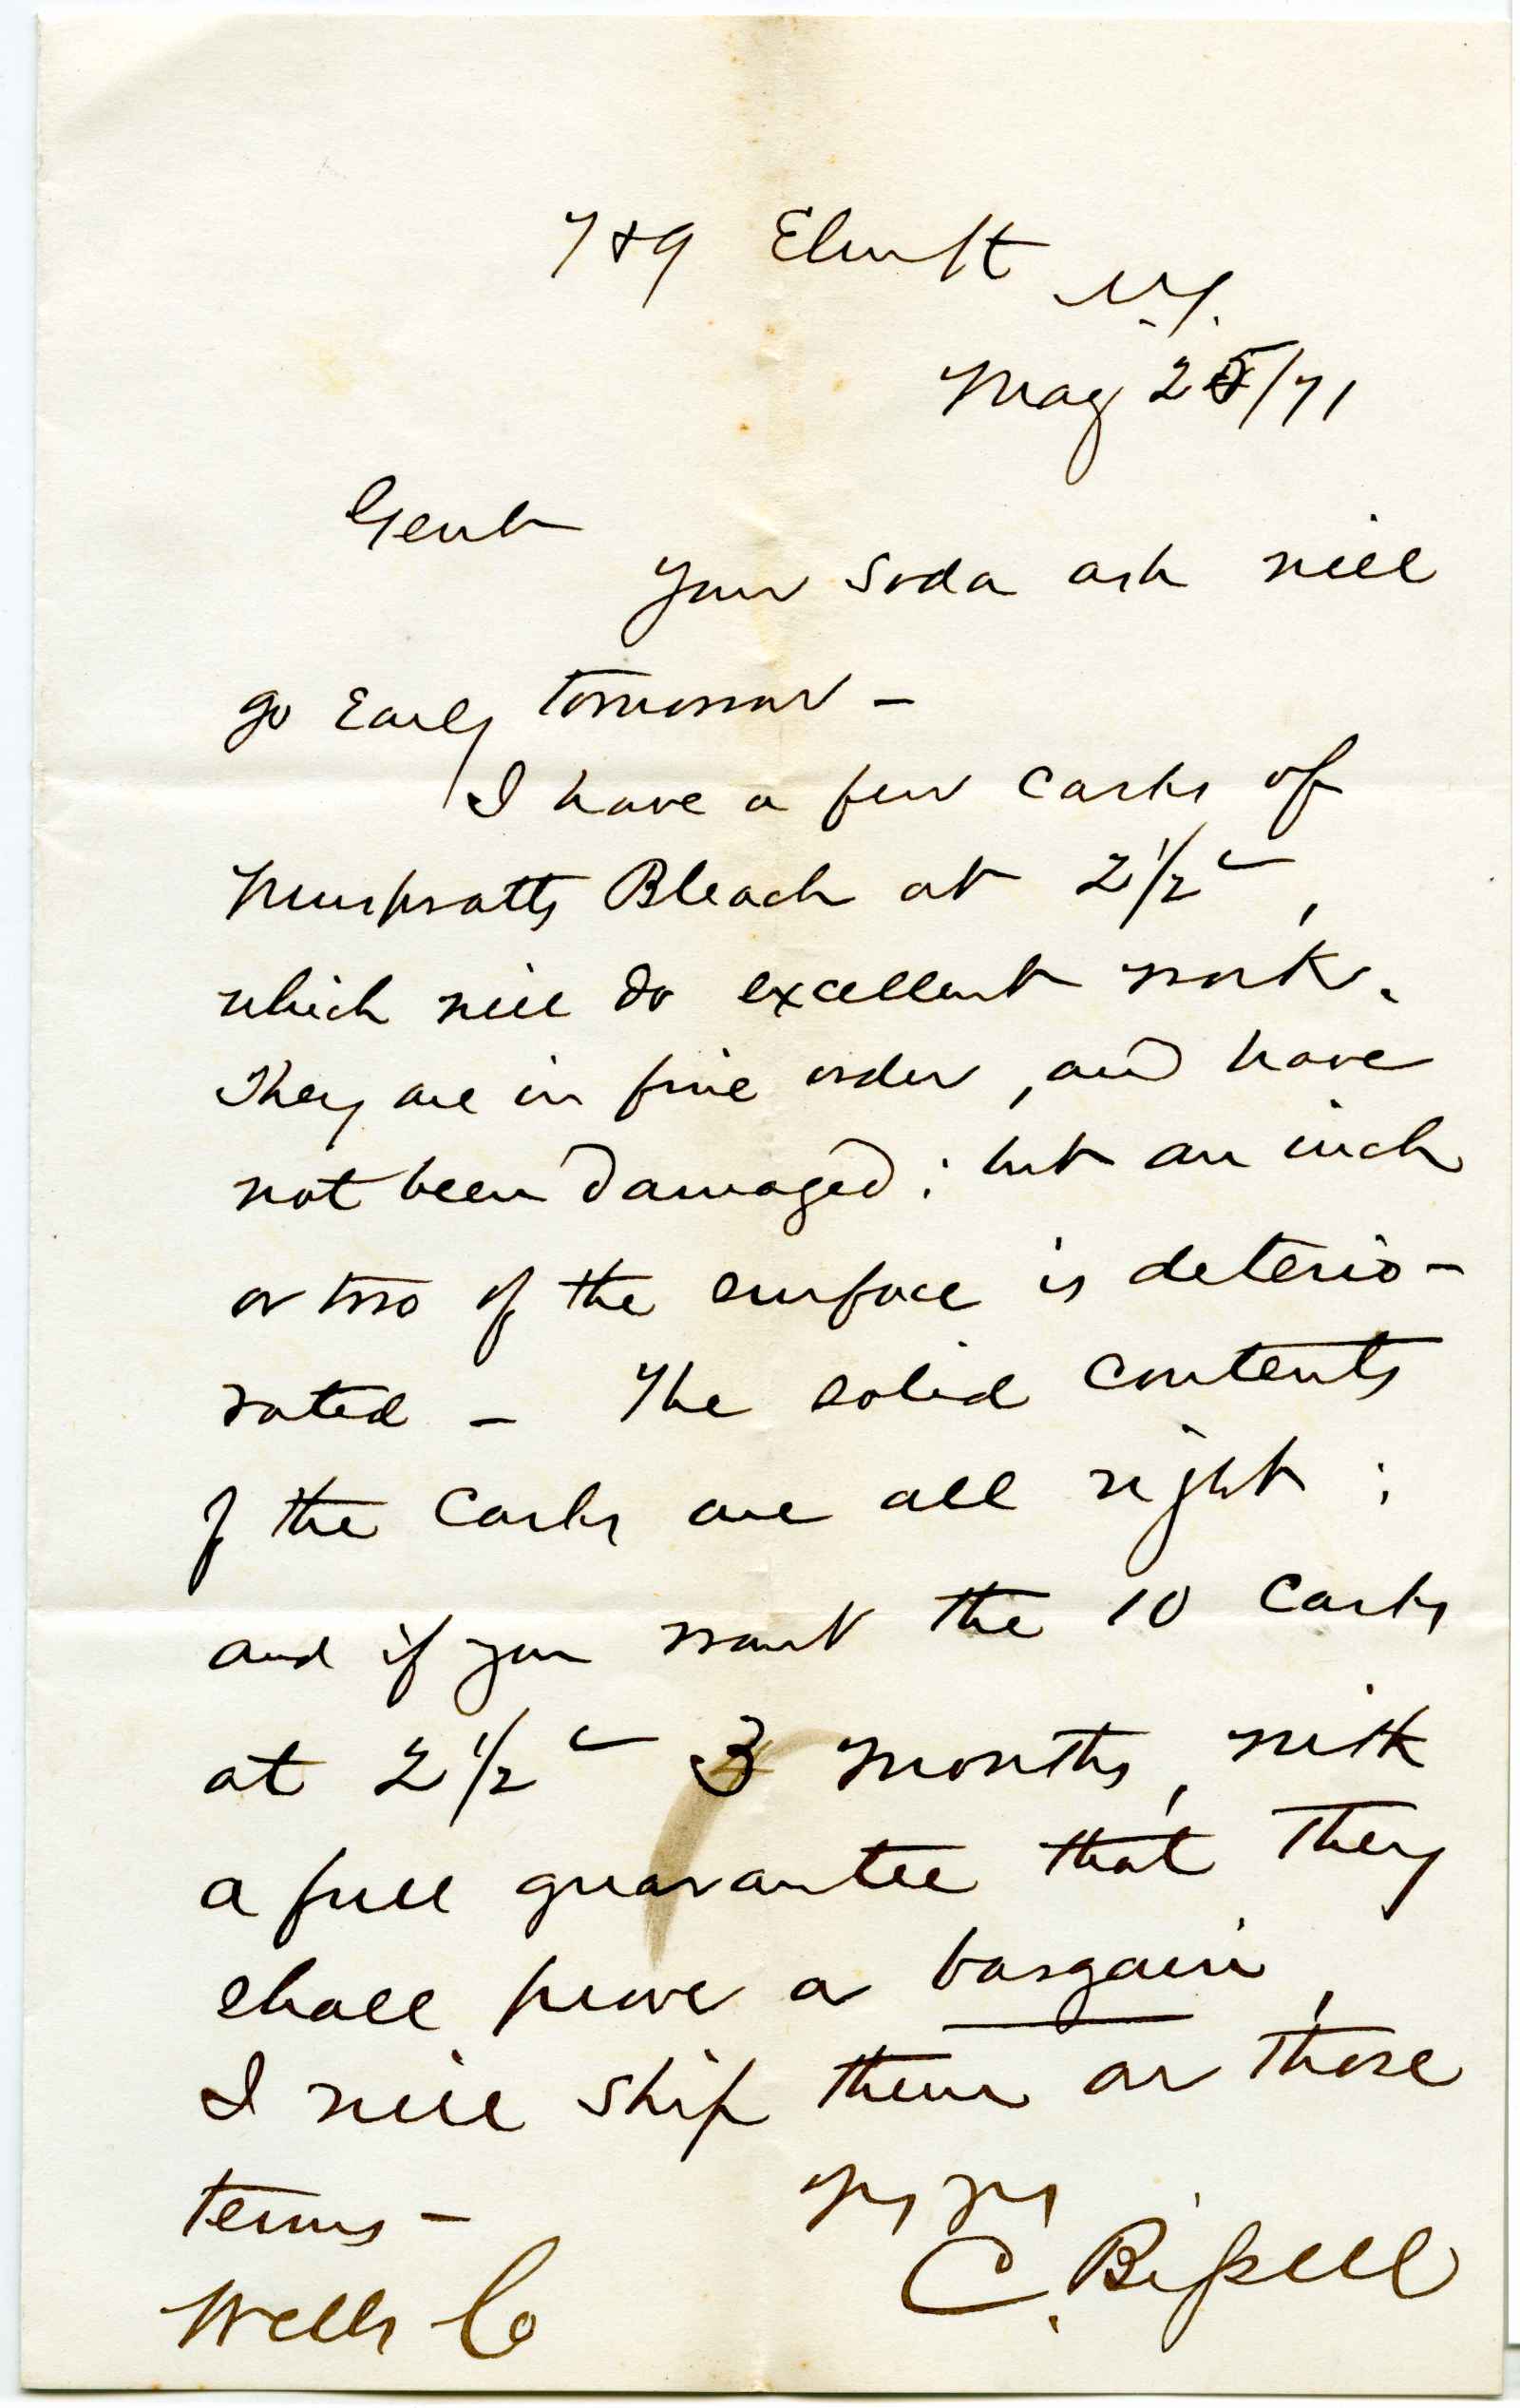 7 & 9 Elm St
N.Y.
May 25/71
Gents
Your Soda ash will
go Early tomorrow –
I have a few casks of
Muspratts Bleach at 2 1/2 c,
which will do excellent work.
They are in fine order, and have
not been damaged; but an inch
or two of the surface is deterio-
rated – The solid contents
of the Casks are all right;
and if you want the 10 Casks
at 2 1/2 c 3 months, with
a full guarantee that they
shall prove a bargain,
I will ship them on those
terms –
C. Bissell
Wells Co